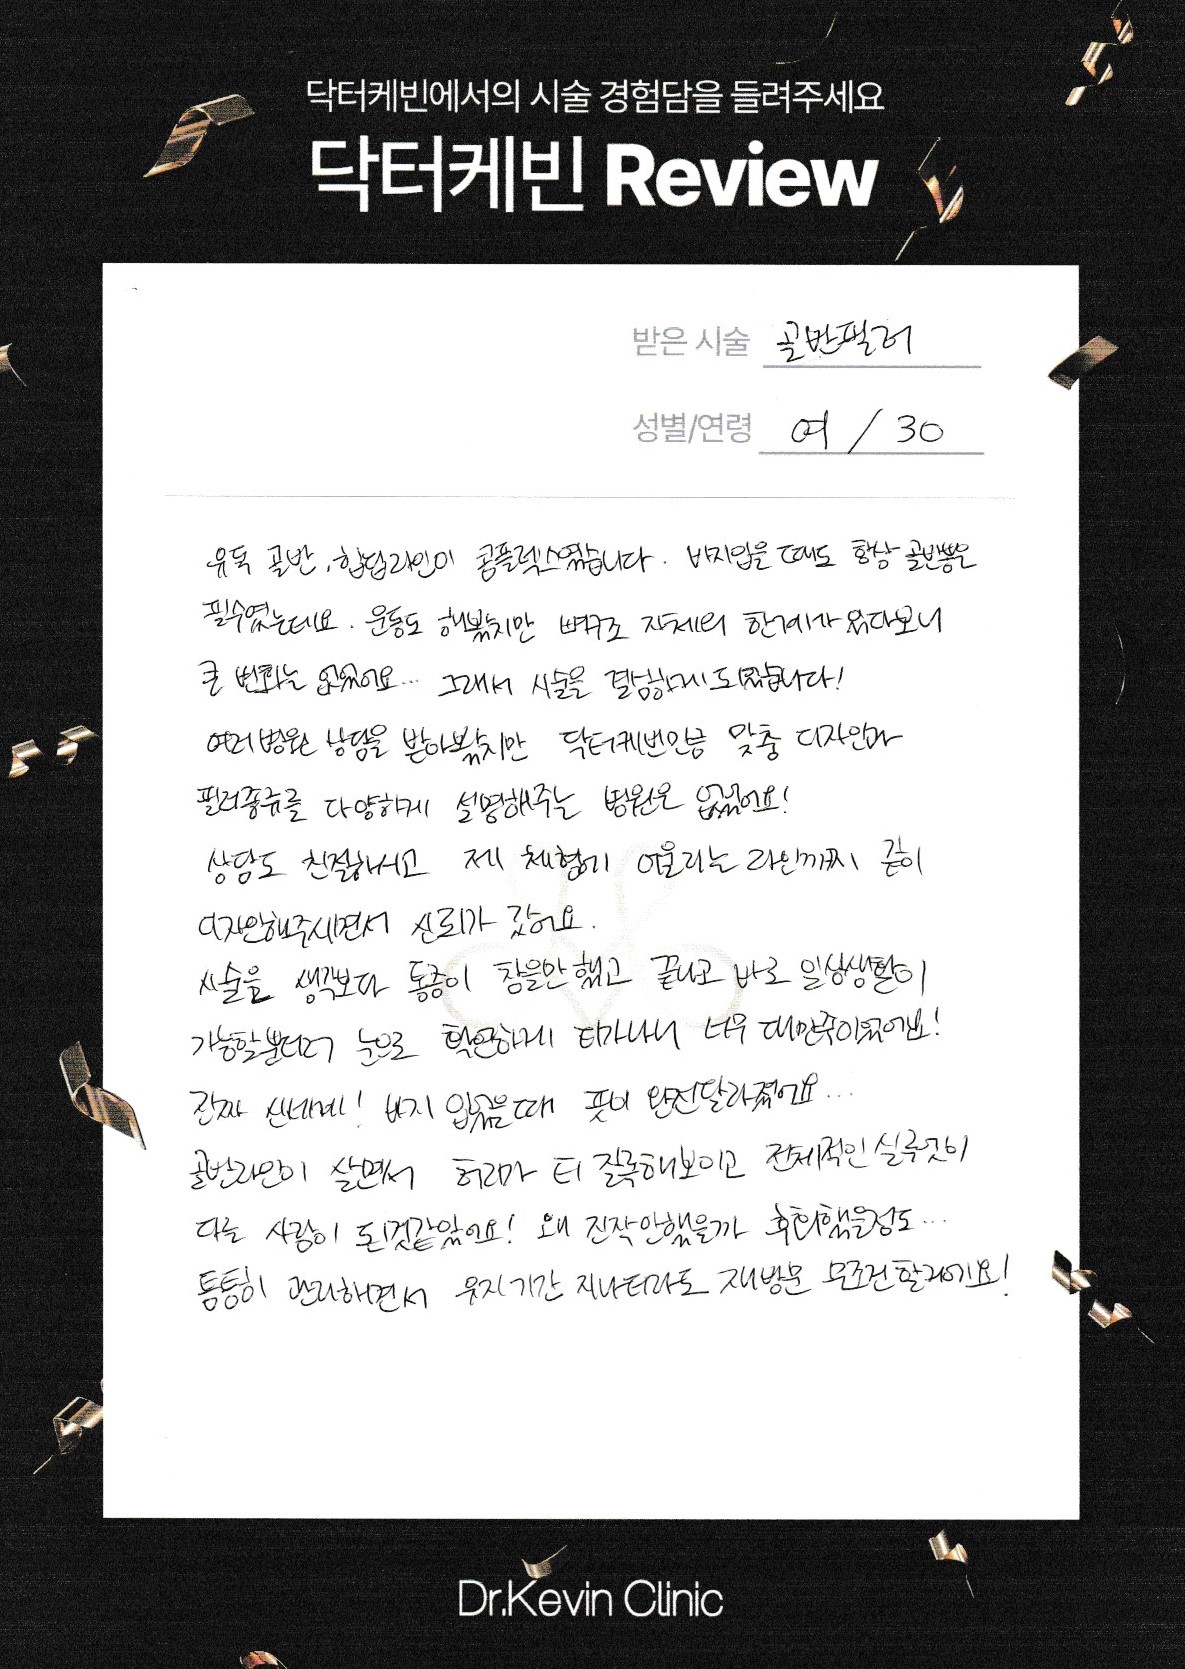 닥터케빈에서의 시술 경험담을 들려주세요
닥터케빈 Review
받은 시술 골반필러
성별/연령 여 / 30
유독 골반, 힙딥라인이 콤플렉스였습니다. 바지입을 때도 항상 골반뽕은
필수였는데요. 운동도 해봤지만 뼈구조 자체의 한계가 있다보니
큰 변화는 없었어요... 그래서 시술을 결심하게 되었습니다!
여러병원 상담을 받아봤지만 닥터케빈만큼 맞춤 디자인과
필러종류를 다양하게 설명해주는 병원은 없었어요!
상담도 친절하시고 제 체형에 어울리는 라인까지 같이
디자인해주시면서 신뢰가 갔어요.
시술은 생각보다 통증이 참을만 했고 끝나고 바로 일상생활이
가능할뿐더러 눈으로 확연하게 티가나니 너무 대만족이었어요!
진짜 신세계! 바지 입었을때 핏이 완전달라졌어요...
골반라인이 살면서 허리가 더 잘록해보이고 전체적인 실루엣이
다른 사람이 된것같았어요! 왜 진작안했을까 후회했을정도...
틈틈히 관리하면서 유지기간 지나더라도 재방문 무조건할거에요!
Dr.Kevin Clinic